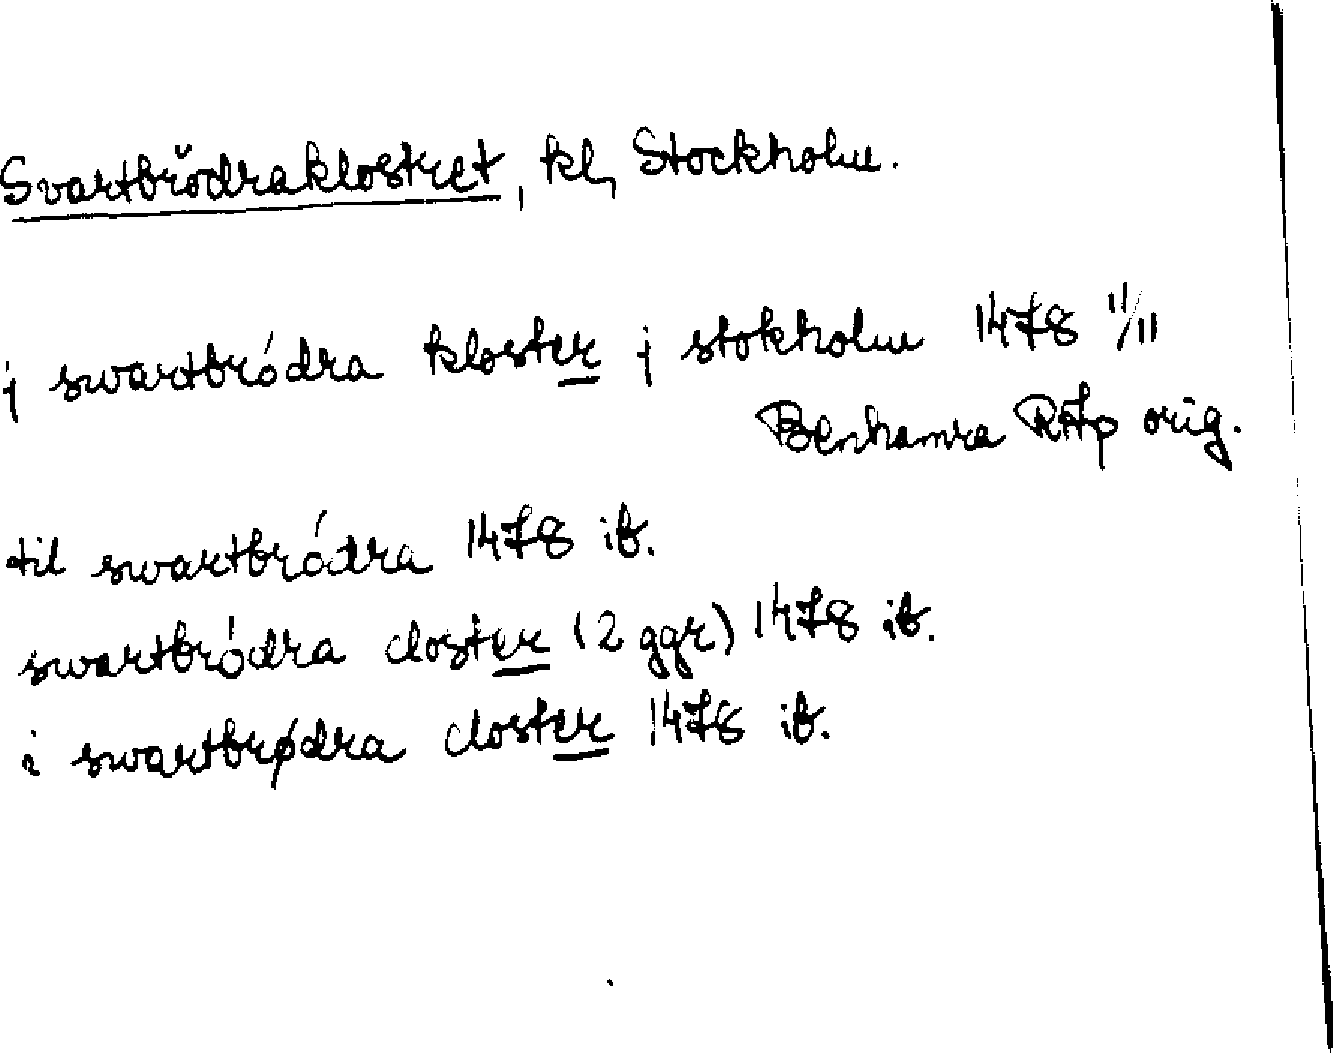 Svartbrödraklostret, kl, Stockholm.
j swartbródra kloster j stokholm 1478 11/11
Benhamra RAp orig.
til swartbródra 1478 ib.
swartbródra closter (2 ggr) 1478 ib.
i swartbrødra closter 1478 ib.